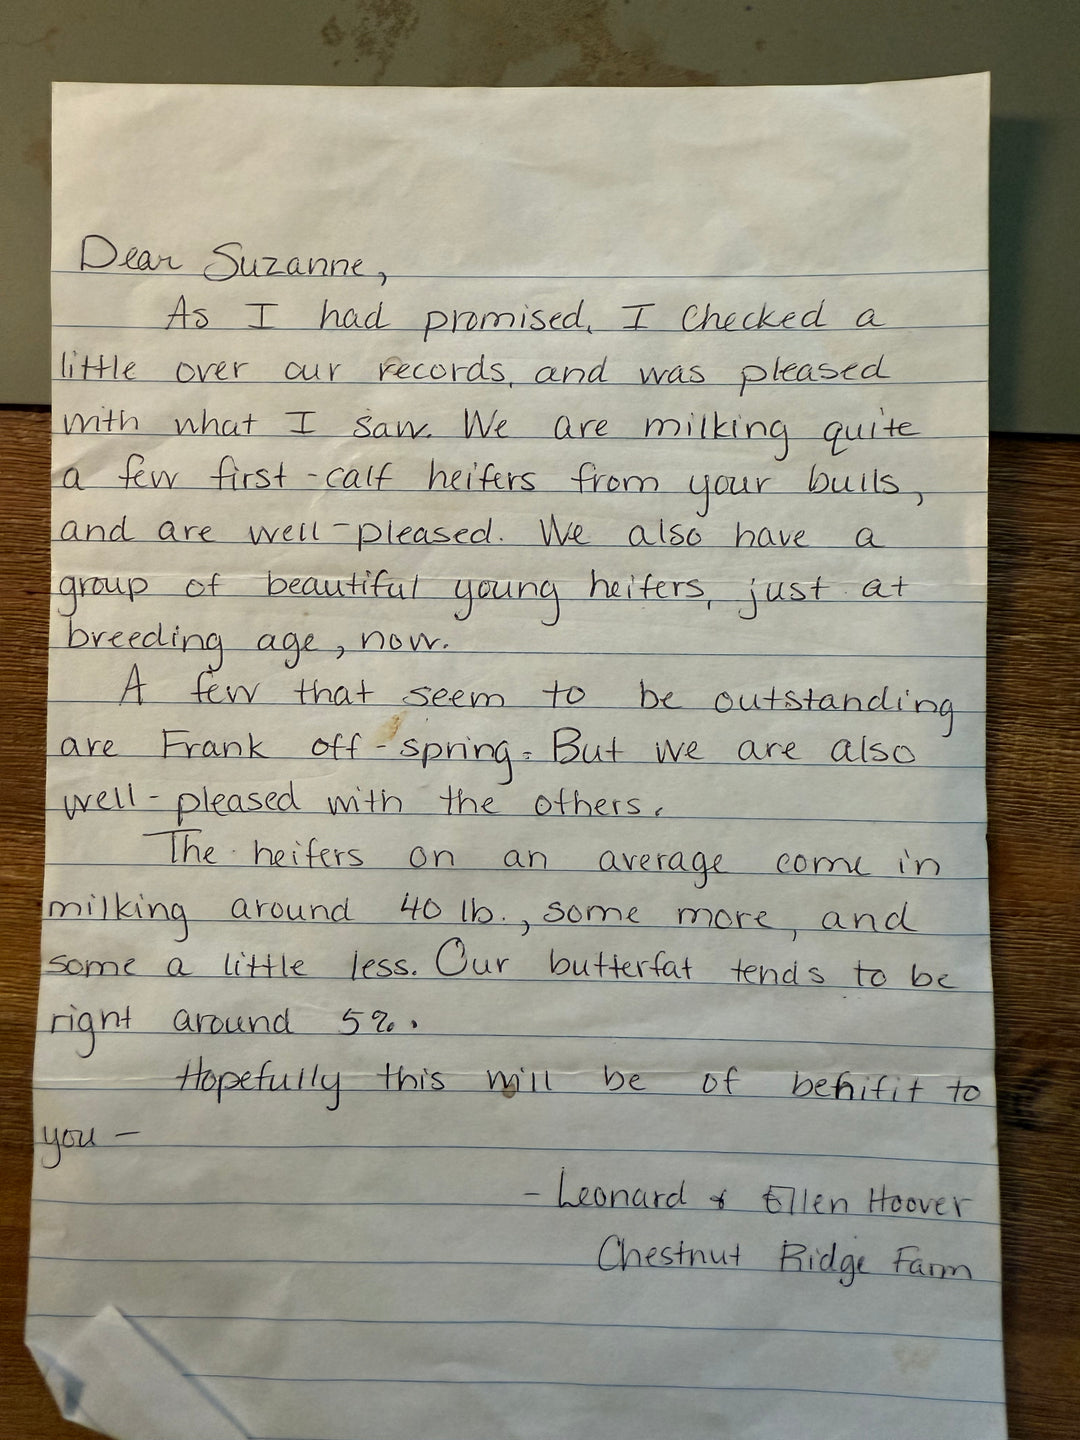 Dear Suzanne,
As I had promised, I checked a
little over our records, and was pleased
with what I saw. We are milking quite
a few first-calf heifers from your bulls,
and are well-pleased. We also have a
group of beautiful young heifers, just at
breeding age, now.
A few that seem to be outstanding
are Frank off-spring. But we are also
well-pleased with the others.
The heifers on an average come in
milking around 40 lb., some more, and
some a little less. Our butterfat tends to be
right around 5%.
Hopefully this will be of benifit to
you –
- Leonard & Ellen Hoover
Chestnut Ridge Farm